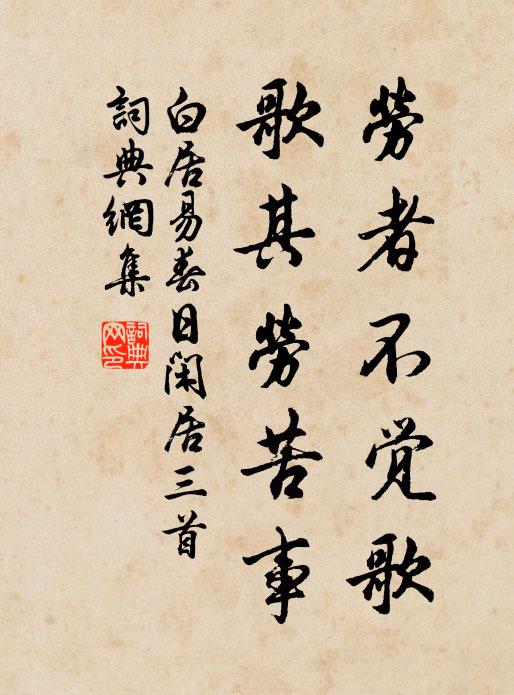 勞者不觉歌
歌其勞苦事
白居易春日闲居三首
詞典網集
詞典网印